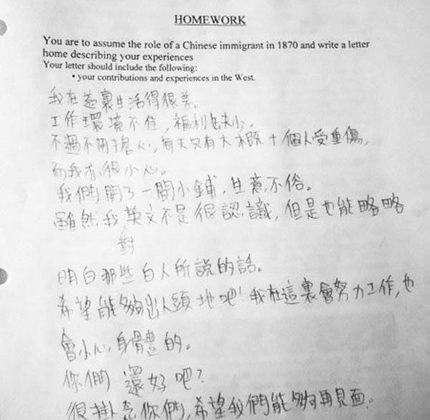 HOMEWORK
You are to assume the role of a Chinese immigrant in 1870 and write a letter
home describing your experiences
Your letter should include the following:
• your contributions and experiences in the West.
我在這裏生活得很差。
工作環境不佳，福利也少。
不過不用擔心，每天只有大概十個人受重傷，
而我亦很小心。
我們開了一間小鋪，生意不俗。
雖然我英文不是很認識，但是也能略略
對
明白那些白人所說的話。
希望能夠出人頭地吧！我在這裏會努力工作，也
會小心身體的。
你們還好吧？
很掛念你們，希望我們能夠再見面。